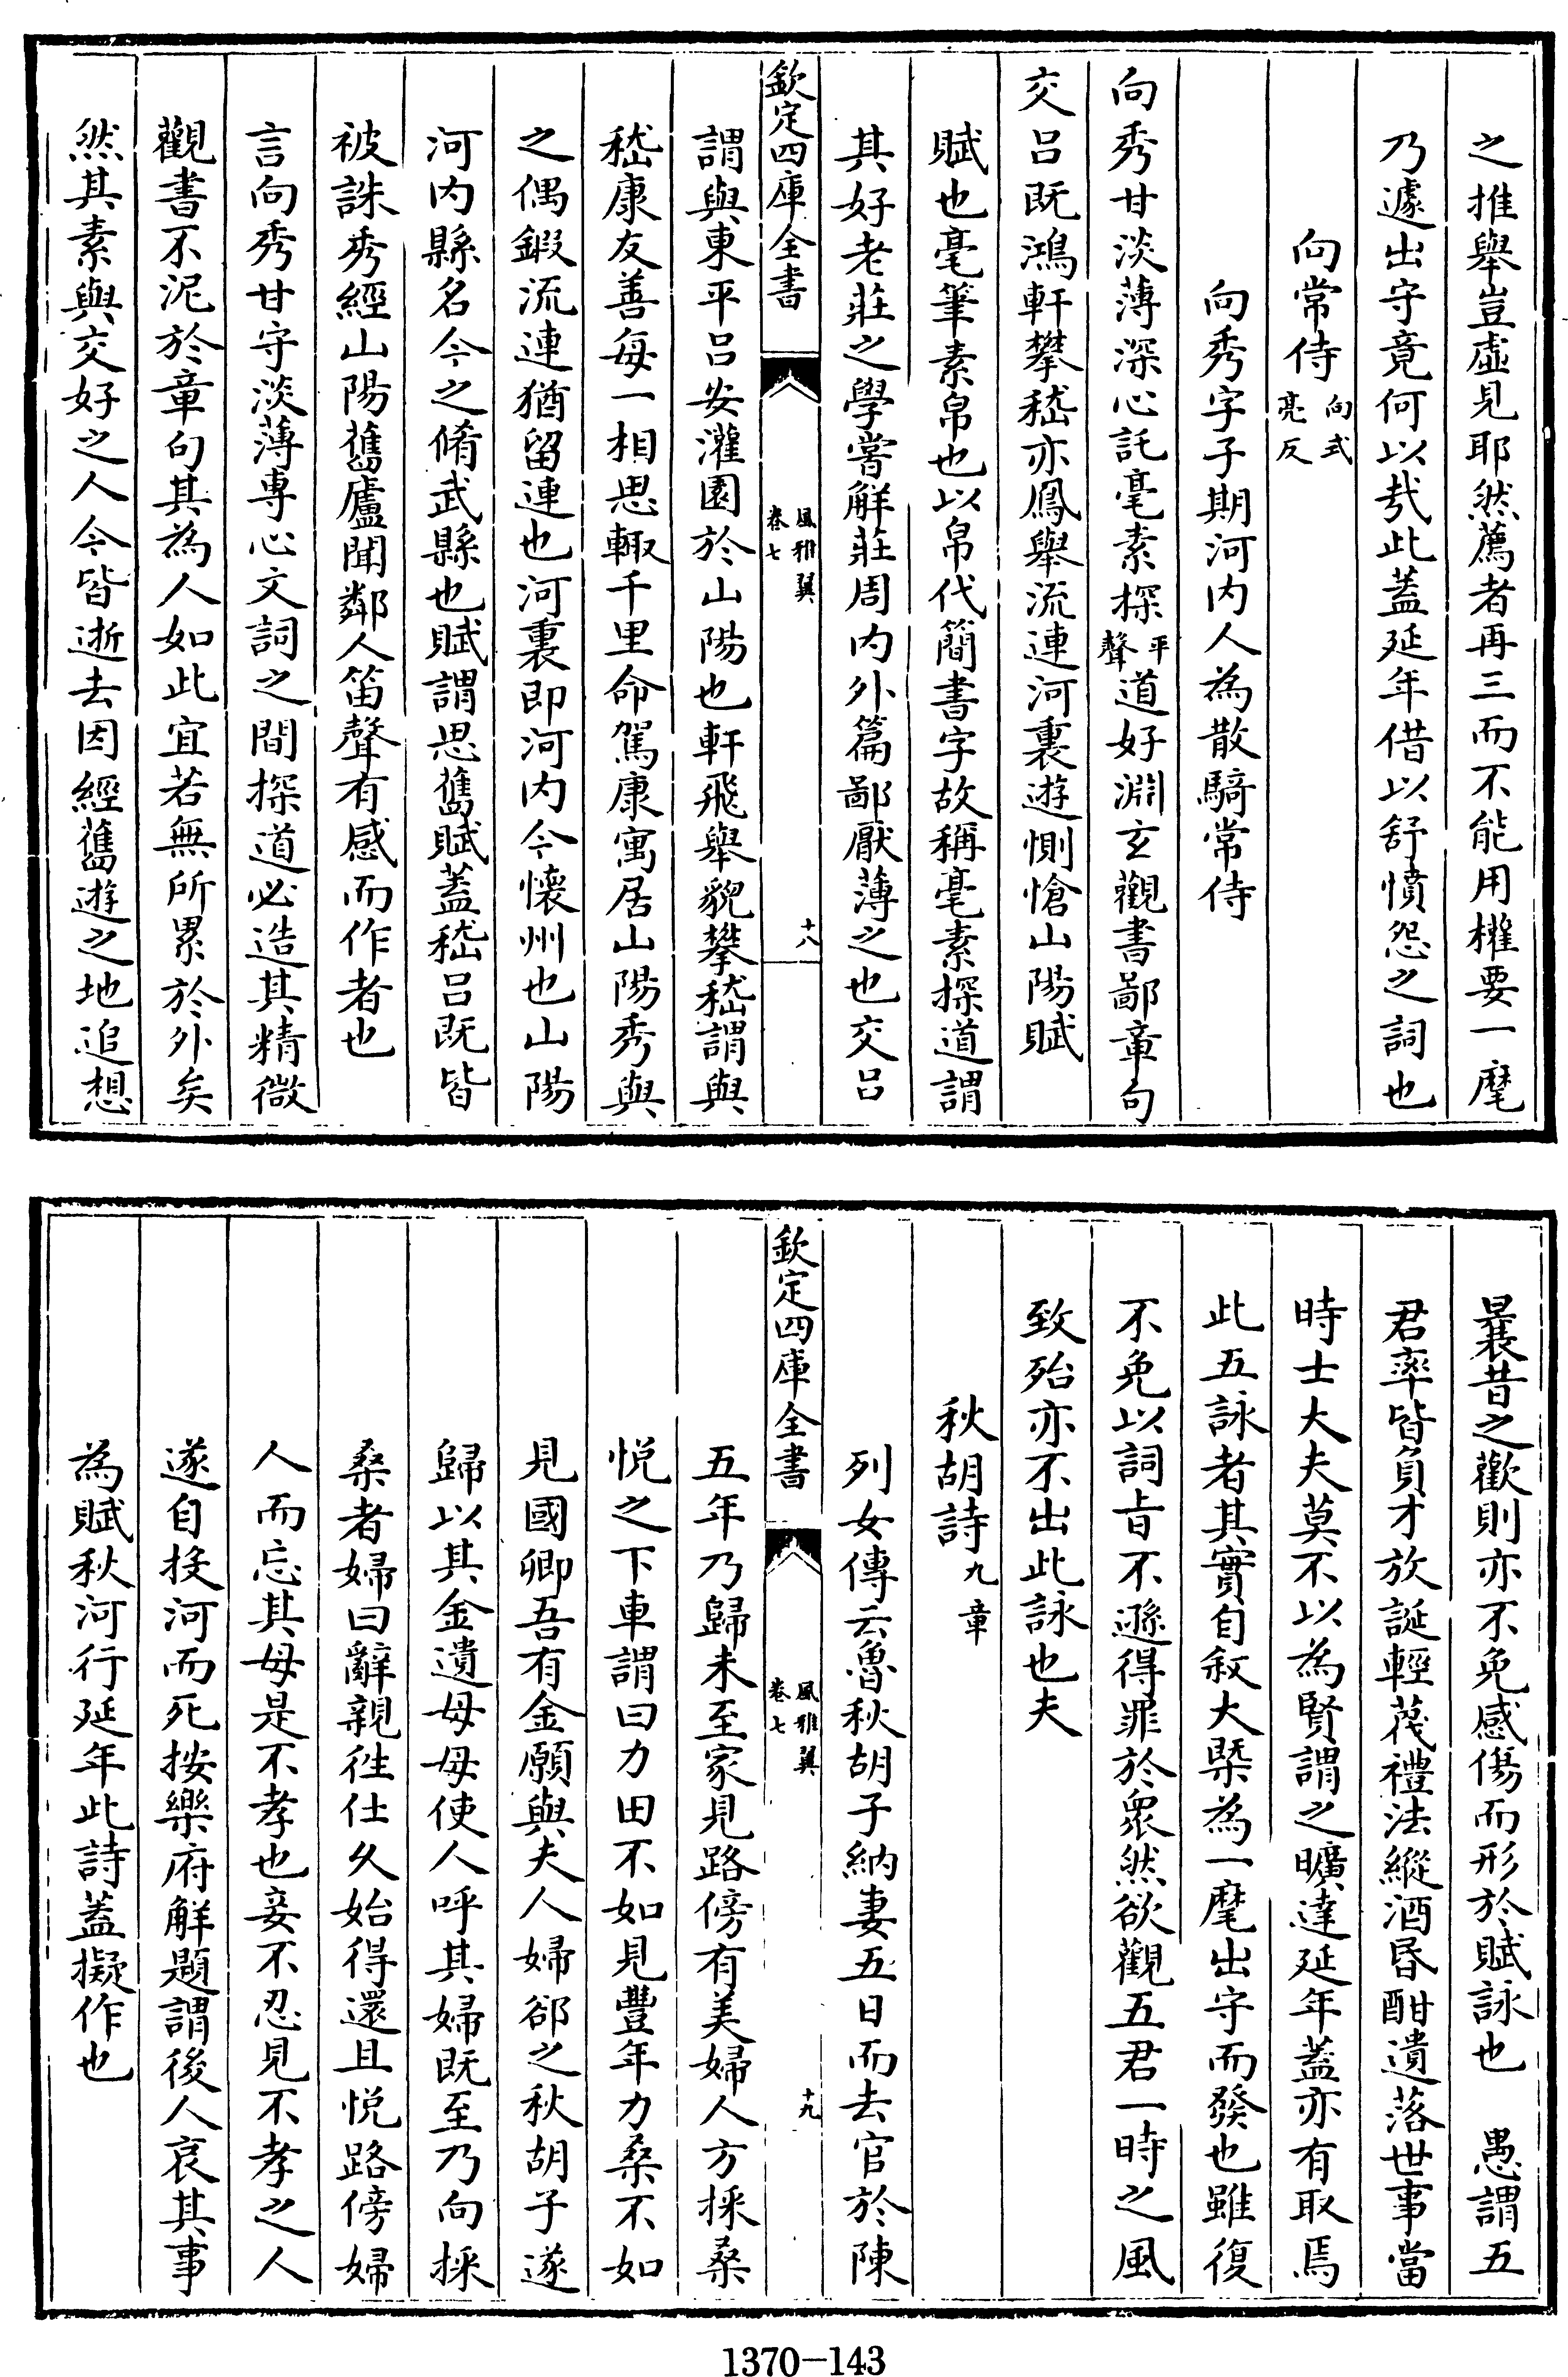 之推舉豈虛見耶然薦者再三而不能用權要一麾
乃遽出守竟何以㢤此蓋延年借以舒憤怨之詞也
向常侍向式亮反
向秀字子期河内人為散騎常侍
向秀甘淡薄深心託毫素探平聲道好淵玄觀書鄙章句
交呂既鴻軒攀嵇亦鳳舉流連河裏遊惻愴山陽賦
賦也毫筆素帛也以帛代簡書字故稱毫素探道謂
其好老莊之學嘗解莊周内外篇鄙厭薄之也交呂
欽定四庫全書
風雅翼
卷七
十八
謂與東平呂安灌園於山陽也軒飛舉貌攀嵇謂與
嵇康友善每一相思輙千里命駕康寓居山陽秀與
之偶鍛流連猶留連也河裏即河内今懷州也山陽
河内縣名今之脩武縣也賦謂思舊賦蓋嵇呂既皆
被誅秀經山陽舊廬聞鄰人笛聲有感而作者也
言向秀甘守淡薄專心文詞之間探道必造其精微
觀書不泥於章句其為人如此宜若無所累於外矣
然其素與交好之人今皆逝去因經舊遊之地追想
曩昔之歡則亦不免感傷而形於賦詠也　愚謂五
君率皆負才放誕輕蔑禮法縱酒昏酣遺落世事當
時士大夫莫不以為賢謂之曠達延年蓋亦有取焉
此五詠者其實自敘大槩為一麾出守而發也雖復
不免以詞旨不遜得罪於衆然欲觀五君一時之風
致殆亦不出此詠也夫
秋胡詩九章
列女傳云魯秋胡子納妻五日而去官於陳
欽定四庫全書
風雅翼
卷七
十九
五年乃歸未至家見路傍有美婦人方採桑
悦之下車謂曰力田不如見豐年力桑不如
見國卿吾有金願與夫人婦郤之秋胡子遂
歸以其金遺母母使人呼其婦既至乃向採
桑者婦曰辭親徃仕久始得還且悦路傍婦
人而忘其母是不孝也妾不忍見不孝之人
遂自投河而死按樂府解題謂後人哀其事
為賦秋河行延年此詩蓋擬作也
1370-143